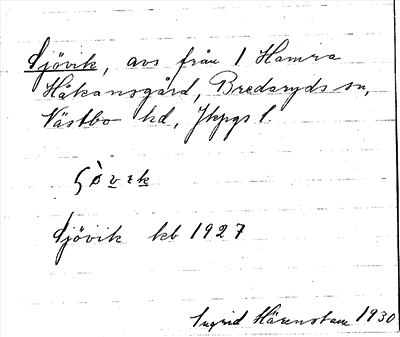 Sjövik, avs från 1 Hamra
Håkansgård, Bredaryds sn,
Västbo hd, Jkpgs l.
Sjövik kb 1927
Ingrid Härenstam 1930